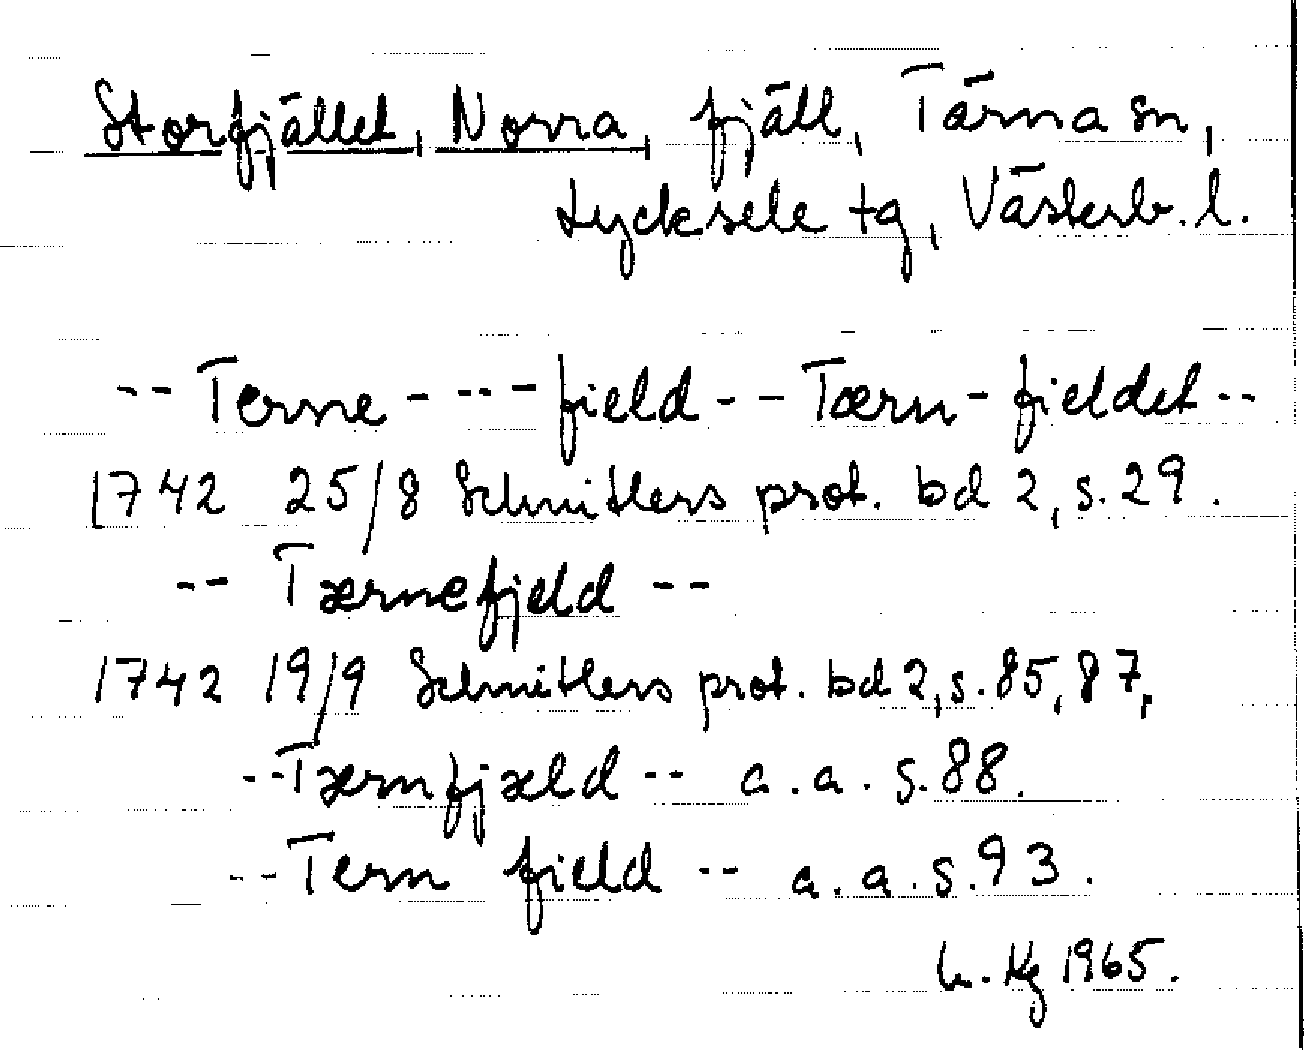 Storfjället, Norra, fjäll, Tärna sn,
Lycksele tg, Västerb. l.
-- Terne - --- field -- Tærn - fieldet --
1742 25/8 Schnitlers prot. bd 2, s. 29.
-- Tærnefjeld --
1742 19/9 Schnitlers prot. bd 2, s. 85, 87,
-- Tærnfjæld -- a. a. s. 88.
-- Tern field -- a. a. s. 93.
1965.